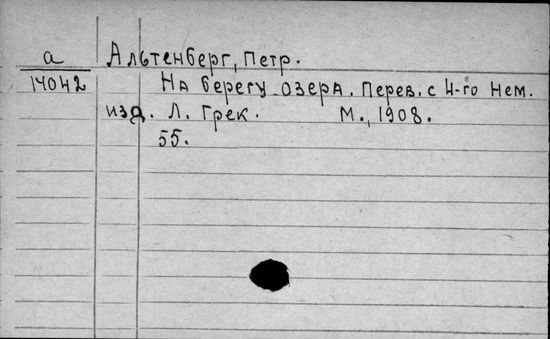 а
14042
Альтенберг, Петр.
На берегу озера. Перев. с 4-го нем.
изд. Л. Грек. М., 1908.
55.